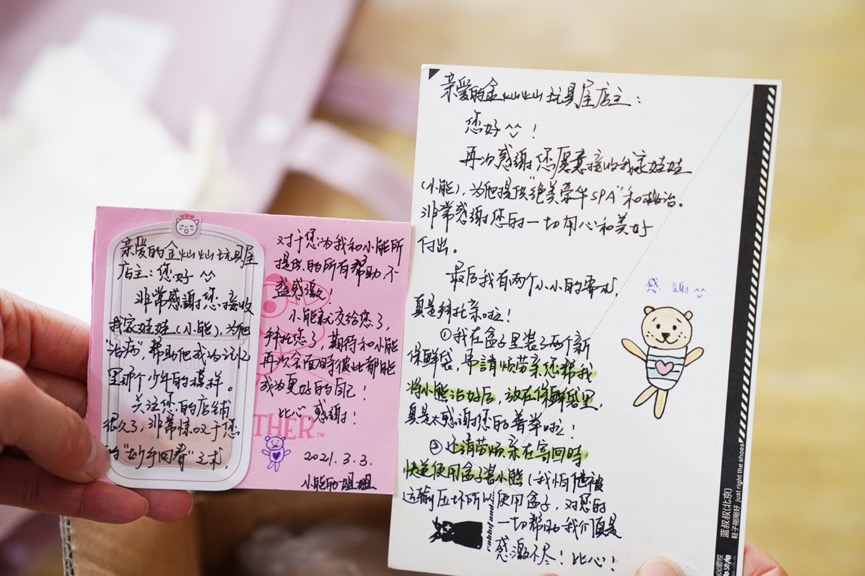 亲爱的金灿灿玩具屋
店主:您好^^
非常感谢您接收
我家娃娃(小熊),为他
"治病",帮助他成为记忆
里那个少年的模样。
关注您的店铺
很久了,非常惊叹于您
的"妙手回春"之术,
对于您为我和小熊所
提供的所有帮助不
盡感激。
小熊就交给您了,
拜托您了,期待和小熊
再次会面时彼此都能
成为更好的自己!
比心 感謝!
THER™
2021.3.3.
小熊的姐姐
亲爱的金灿灿玩具屋店主:
您好^^!
再次感谢您愿意接收我家娃娃
(小熊),为他提供"绝美豪华SPA"和救治。
非常感谢您的一切用心和美好
付出。
最后我有两个小小的需求,
真是拜托亲啦!
①我在盒子里装了两个新
保鲜袋,申請烦劳亲您帮我
将小熊治好后,放在保鲜袋里,
真是太感谢您的善举啦!
②还请劳烦亲在寄回时
快递使用盒子装小熊(我怕他被
运输压坏所以使用盒子,对您的
一切帮助我们真是
感激不尽!比心!
感 謝
rabbitland
蓝叔叔(北京)
鞋子刚刚好 just right the shoes